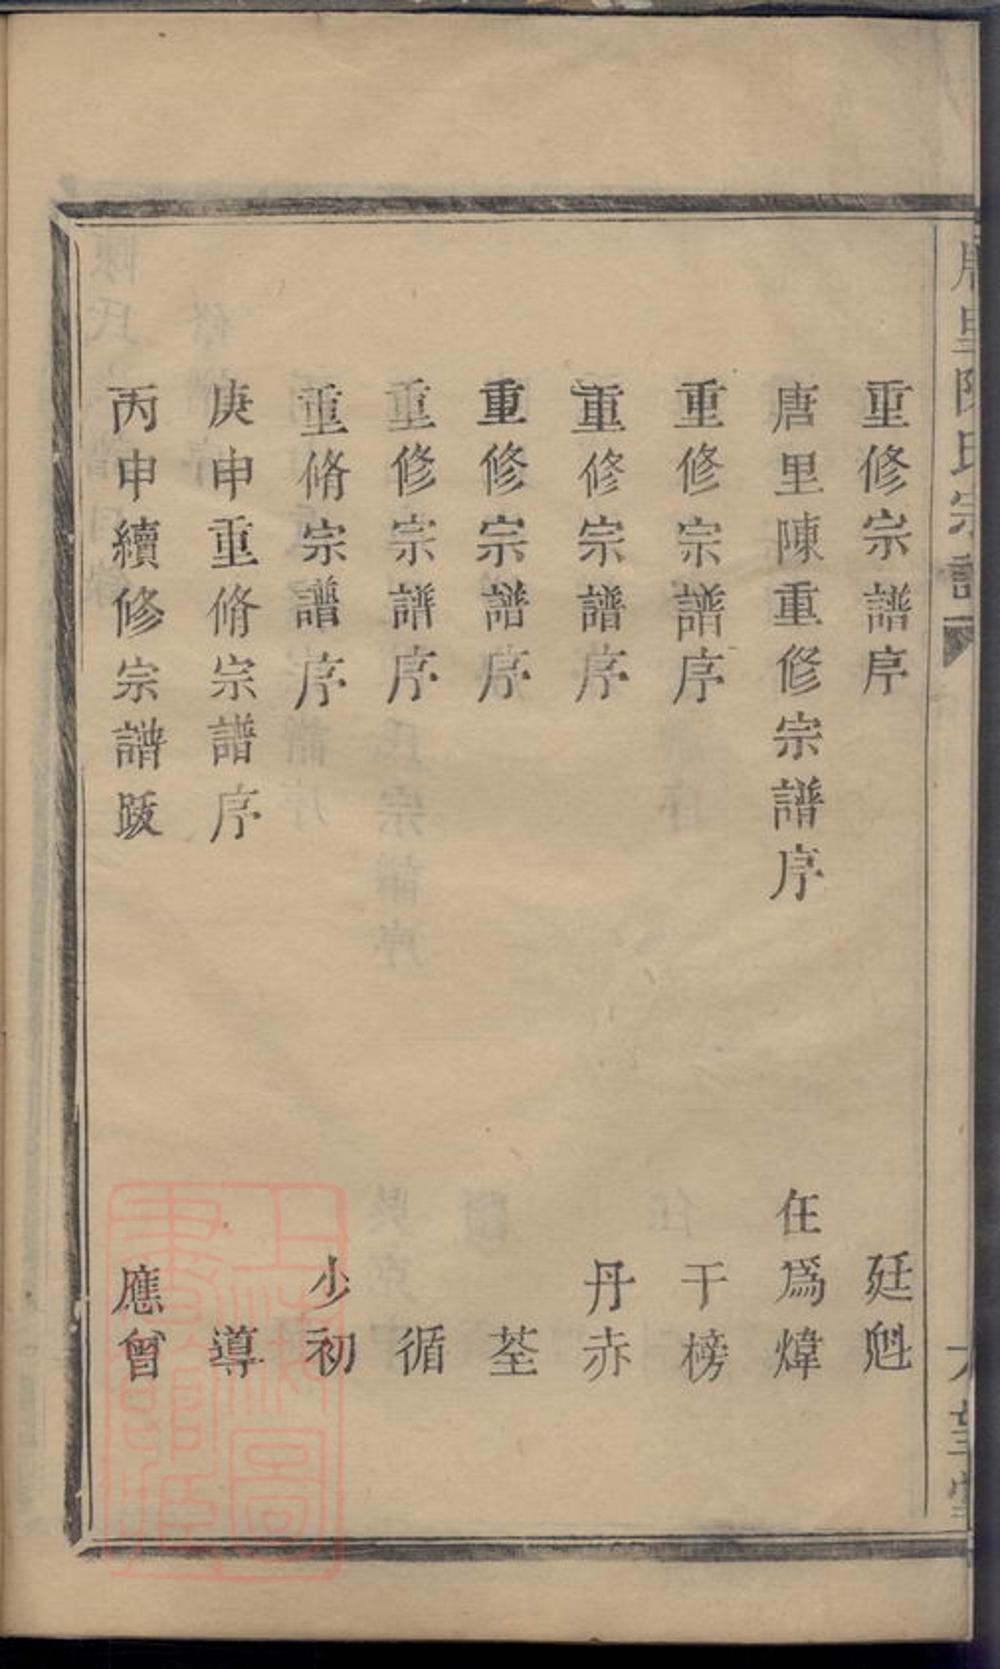 唐里陳氏宗譜
重修宗譜序 廷魁
唐里陳重修宗譜序 任爲煒
重修宗譜序 于榜
重修宗譜序 丹赤
重修宗譜序 荃
重修宗譜序 循
重脩宗譜序 少初
庚申重脩宗譜序 導
丙申續修宗譜跋 應曾
上海圖書館藏